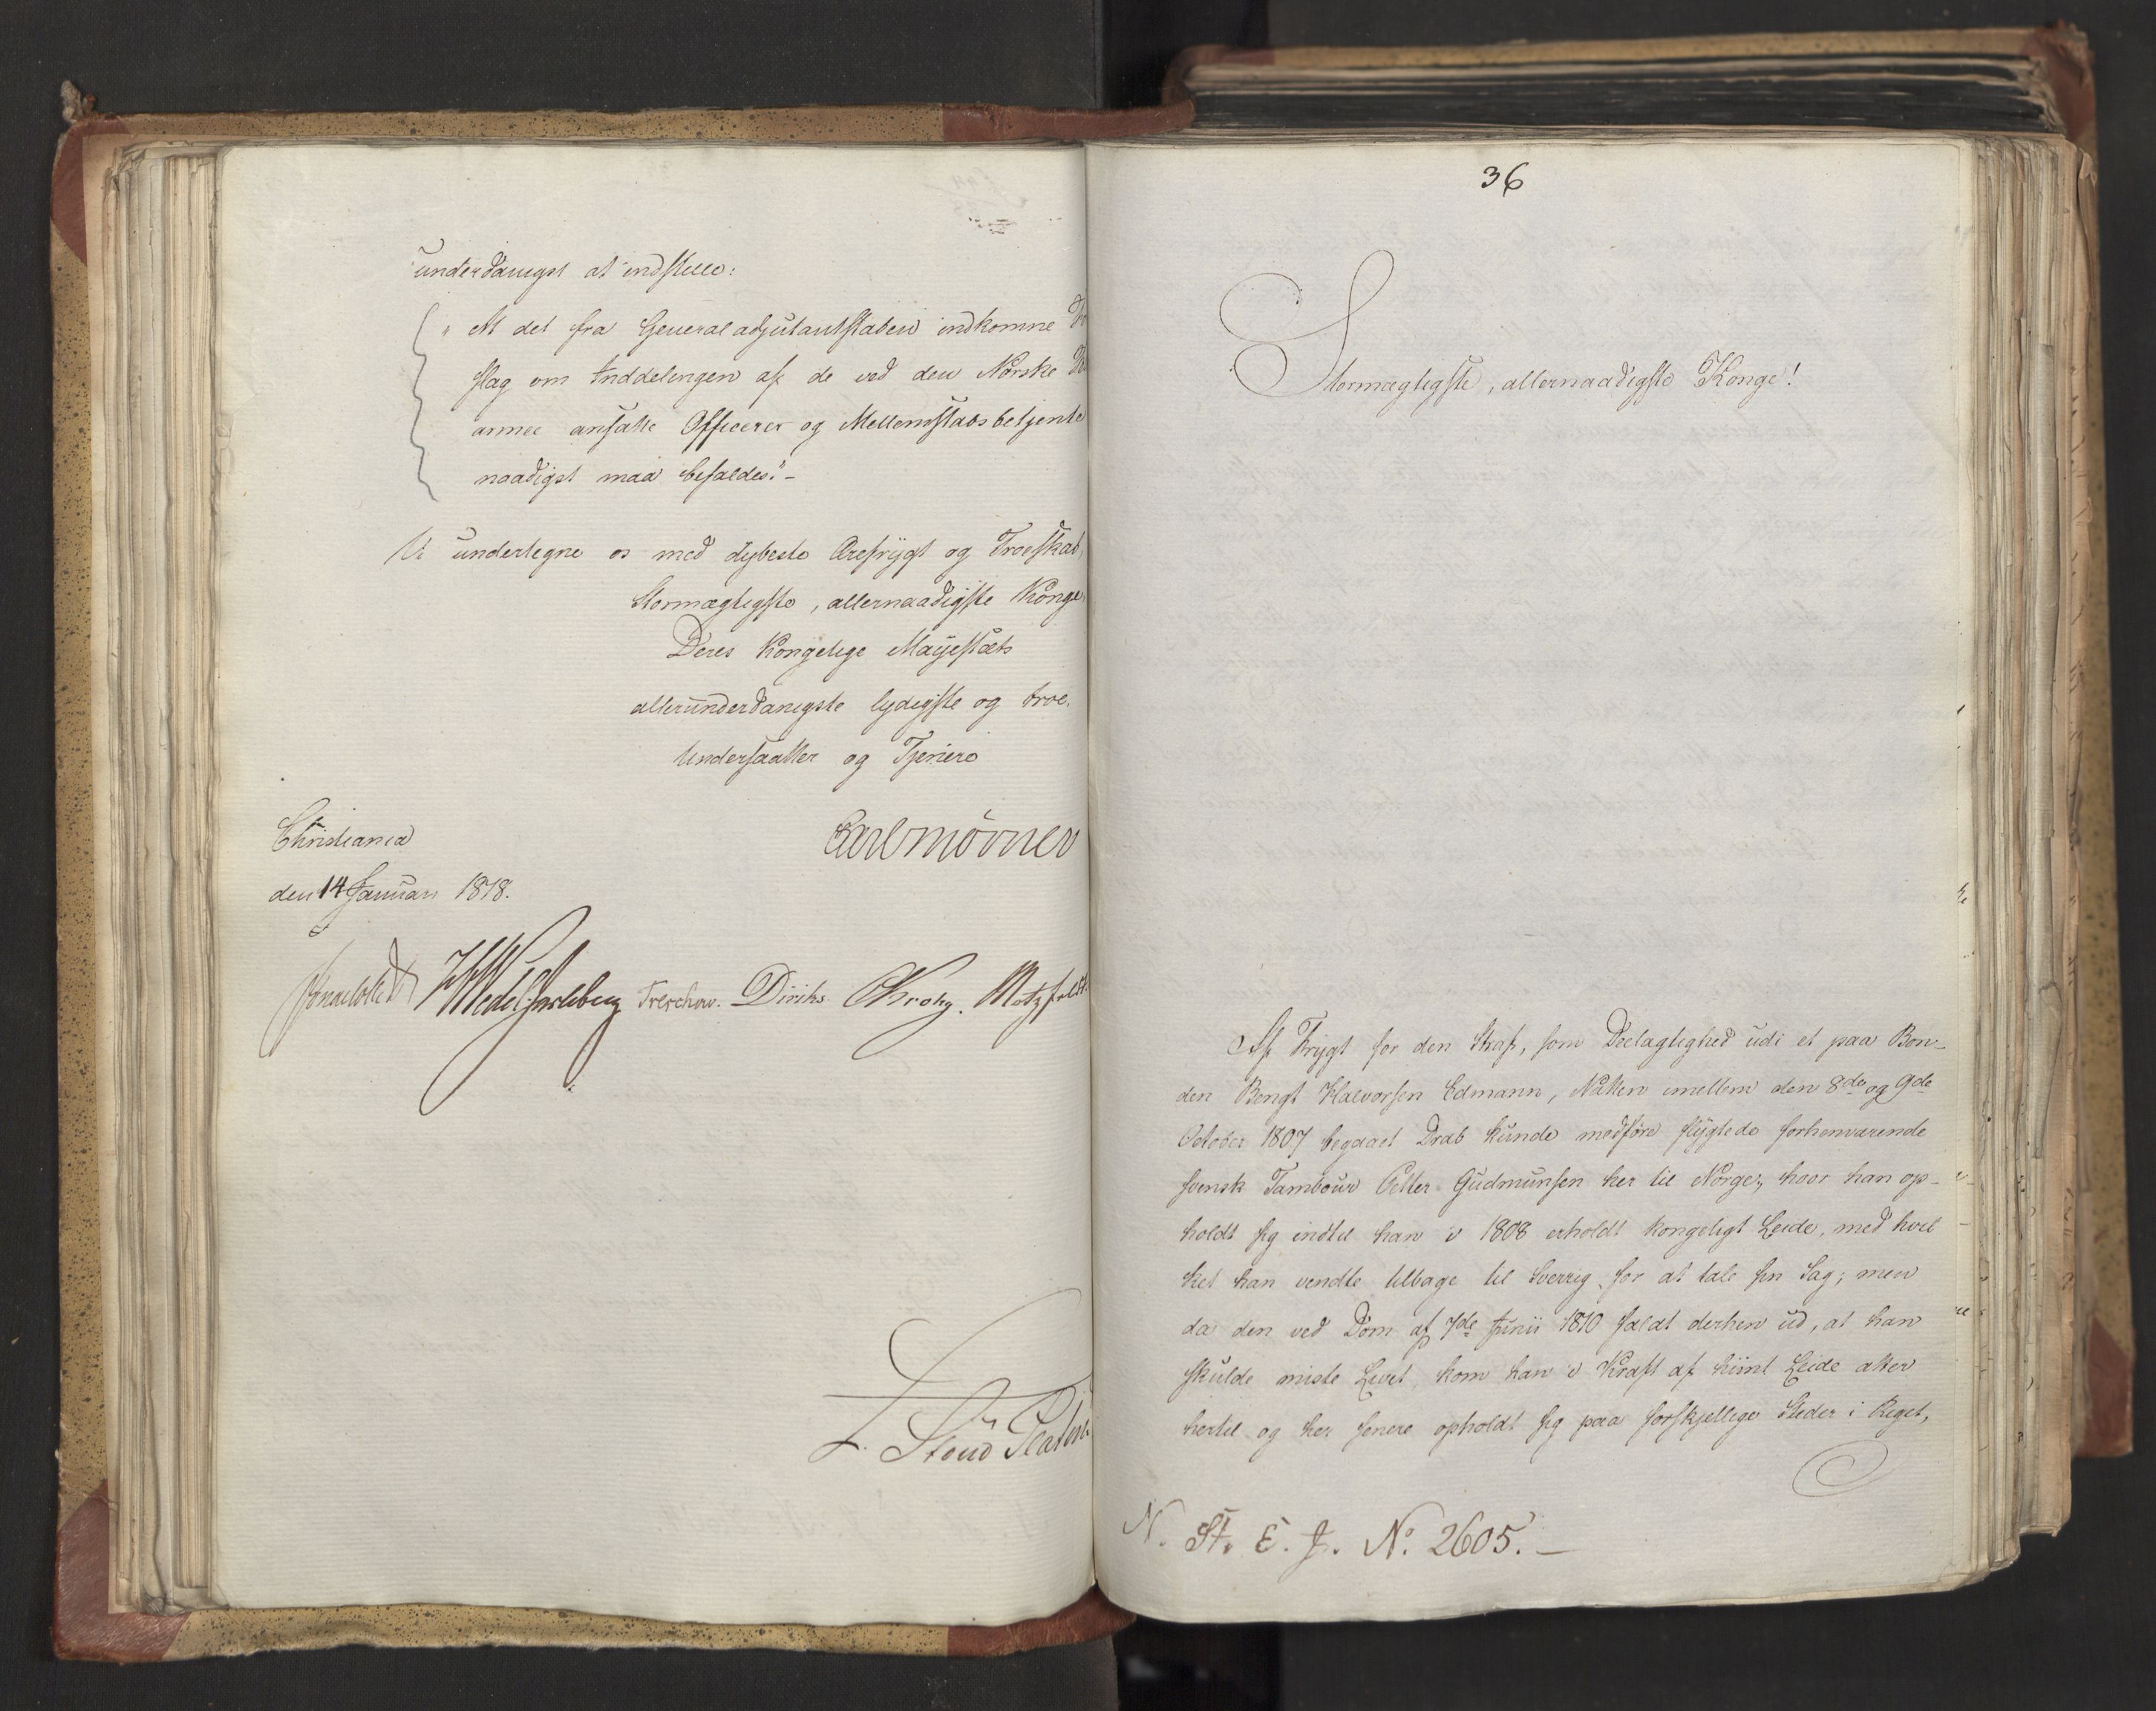 underdanigst at indstille:
"At det fra Generaladjutantstaben indkomne
slag om Inddelingen af de ved den Norske
armee ansatte Officerer og Mellemstabsbetjente
naadigst maa befaldes." -
Vi undertegne os med dybeste Ærefrygt og Troeskab,
Stormægtigste, allernaadigste Konge
Deres Kongelige Majestæts
allerunderdanigste lydigste og troe
Undersaatter og Tjenere
Christiania
den 14 Januar 1818.
Carl Mörner
Sommerhielm Wedel Jarlsberg Treschow. Diriks CKrohg. Motzfeldt
Stoud Platou
36
Stormægtigste, allernaadigste Konge!
Af Frygt for den Straf, som Deelagtighed udi et paa Bon-
den Bengt Halvorsen Edmann, Natten imellem den 8de og 9de
October 1807 begaaet Drab kunde medføre flygtede forhenværende
svensk Tambour Petter Gudmunsen her til Norge, hvor han op-
holdt sig indtil han i 1808 erholdt kongeligt Leide, med hvil
ket han vendte tilbage til Sverrig for at tale sin Sag; men
da den ved Dom af 7de Junii 1810 faldt derhen ud, at han
skulde miste Livet, kom han i Kraft af hiint Leide atter
hertil og her senere opholdt sig paa forskjellige Steder i Riget,
N. St. E. J. No. 2605. -